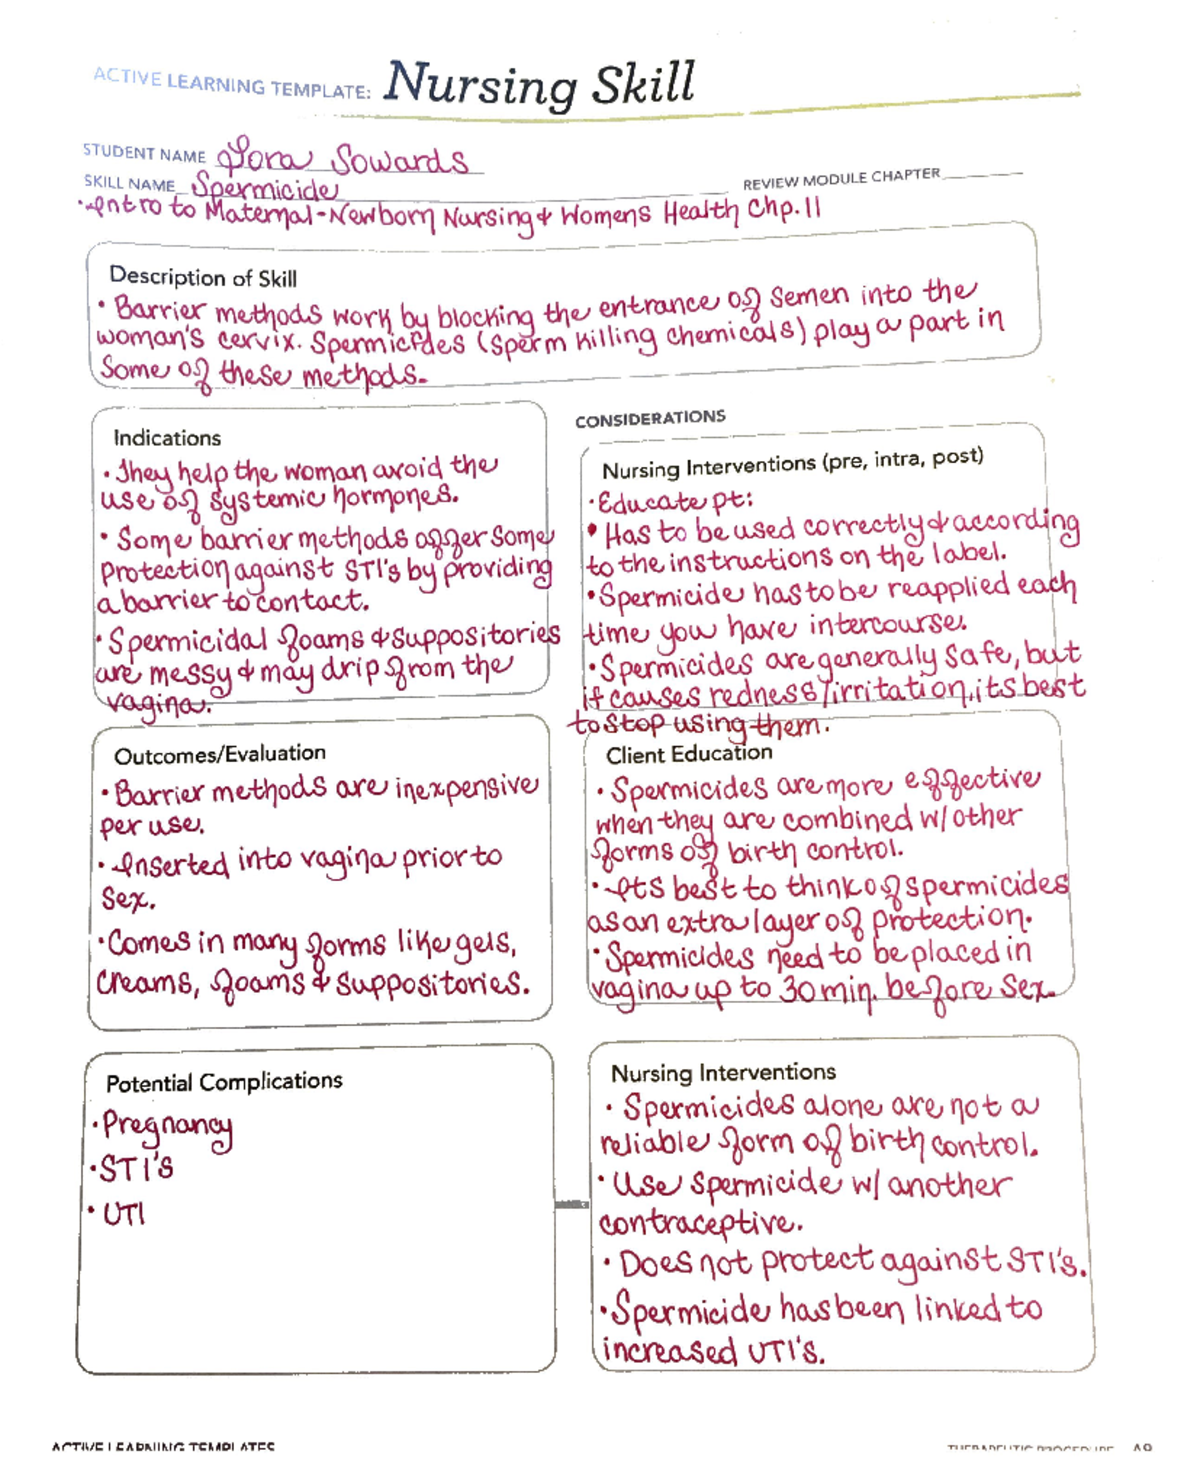 ACTIVE LEARNING TEMPLATE: Nursing Skill
STUDENT NAME Sowards
SKILL NAME Spermicide
REVIEW MODULE CHAPTER
• Intro to Maternal-Newborn Nursing & Womens Health Chp. 11
Description of Skill
• Barrier methods work by blocking the entrance of semen into the
woman's cervix. Spermicides (sperm killing chemicals) play a part in
some of these methods.
Indications
• They help the woman avoid the
use of systemic hormones.
• Some barrier methods offer some
protection against STI's by providing
a barrier to contact.
• Spermicidal foams & suppositories
are messy & may drip from the
vagina.
CONSIDERATIONS
Nursing Interventions (pre, intra, post)
• Educate pt:
• Has to be used correctly & according
to the instructions on the label.
• Spermicide has to be reapplied each
time you have intercourse.
• Spermicides are generally safe, but
if causes redness/irritation, its best
to stop using them.
Outcomes/Evaluation
• Barrier methods are inexpensive
per use.
• Inserted into vagina prior to
sex.
• Comes in many forms like gels,
creams, foams & suppositories.
Client Education
• Spermicides are more effective
when they are combined w/ other
forms of birth control.
• Its best to think of spermicides
as an extra layer of protection.
• Spermicides need to be placed in
vagina up to 30 min. before sex.
Potential Complications
• Pregnancy
• STI's
• UTI
Nursing Interventions
• Spermicides alone are not a
reliable form of birth control.
• Use spermicide w/ another
contraceptive.
• Does not protect against STI's.
• Spermicide has been linked to
increased UTI's.
ACTIVE LEARNING TEMPLATES
THERAPEUTIC PROCEDURE A9